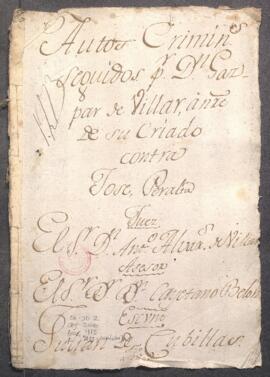 Autos Crimin.s
seguidos p.r D.n Gas
par de Villar, ante
de su Criado
contra
Jose Peralta
Juez
El S.r D.n Ant.o Alvar.s de Villar
Asesor
El S.r D.r D.n Cayetano Belon
Escrivno
de Cubillas.